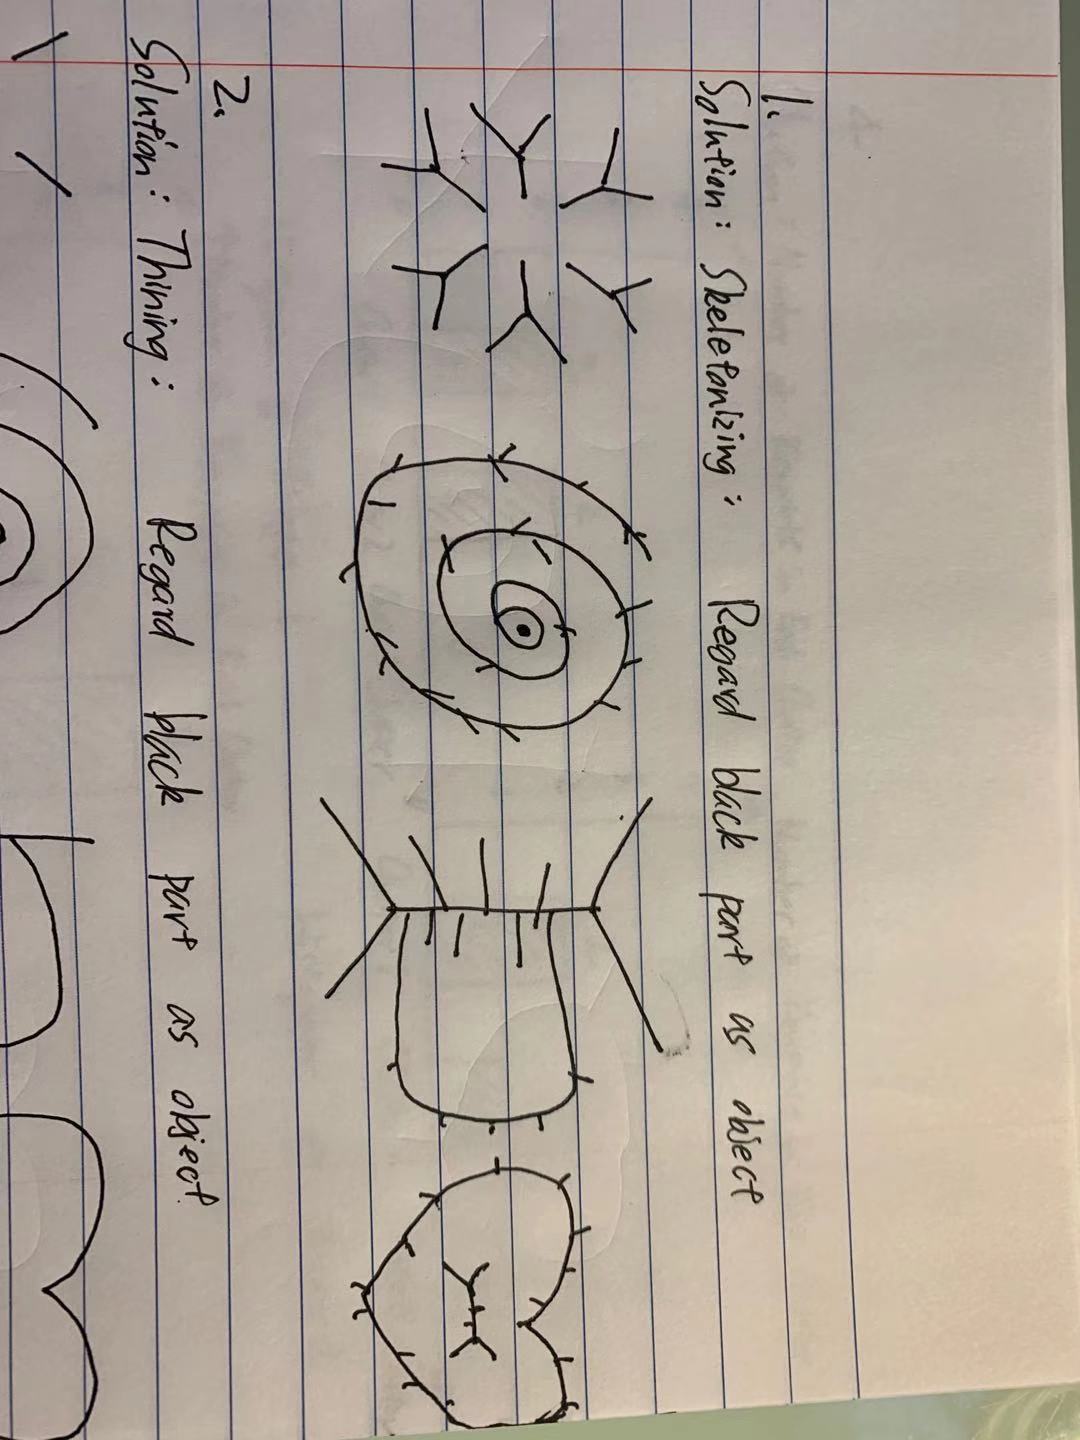 1.
Solution: Skeletanizing: Regard black part as object
2.
Solution: Thining: Regard black part as object